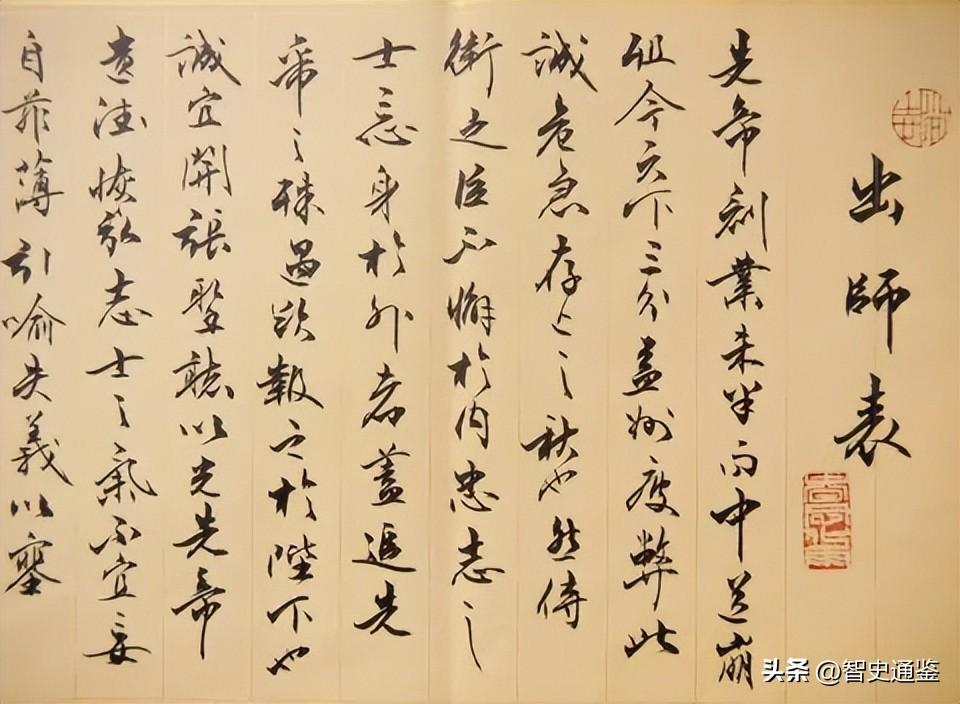 出師表
先帝創業未半而中道崩
殂今天下三分益州疲弊此
誠危急存亡之秋也然侍
衛之臣不懈於内忠志之
士忘身於外者蓋追先
帝之殊遇欲報之於陛下也
誠宜開張聖聽以光先帝
遺德恢弘志士之氣不宜妄
自菲薄引喻失義以塞
头条 @智史通鉴